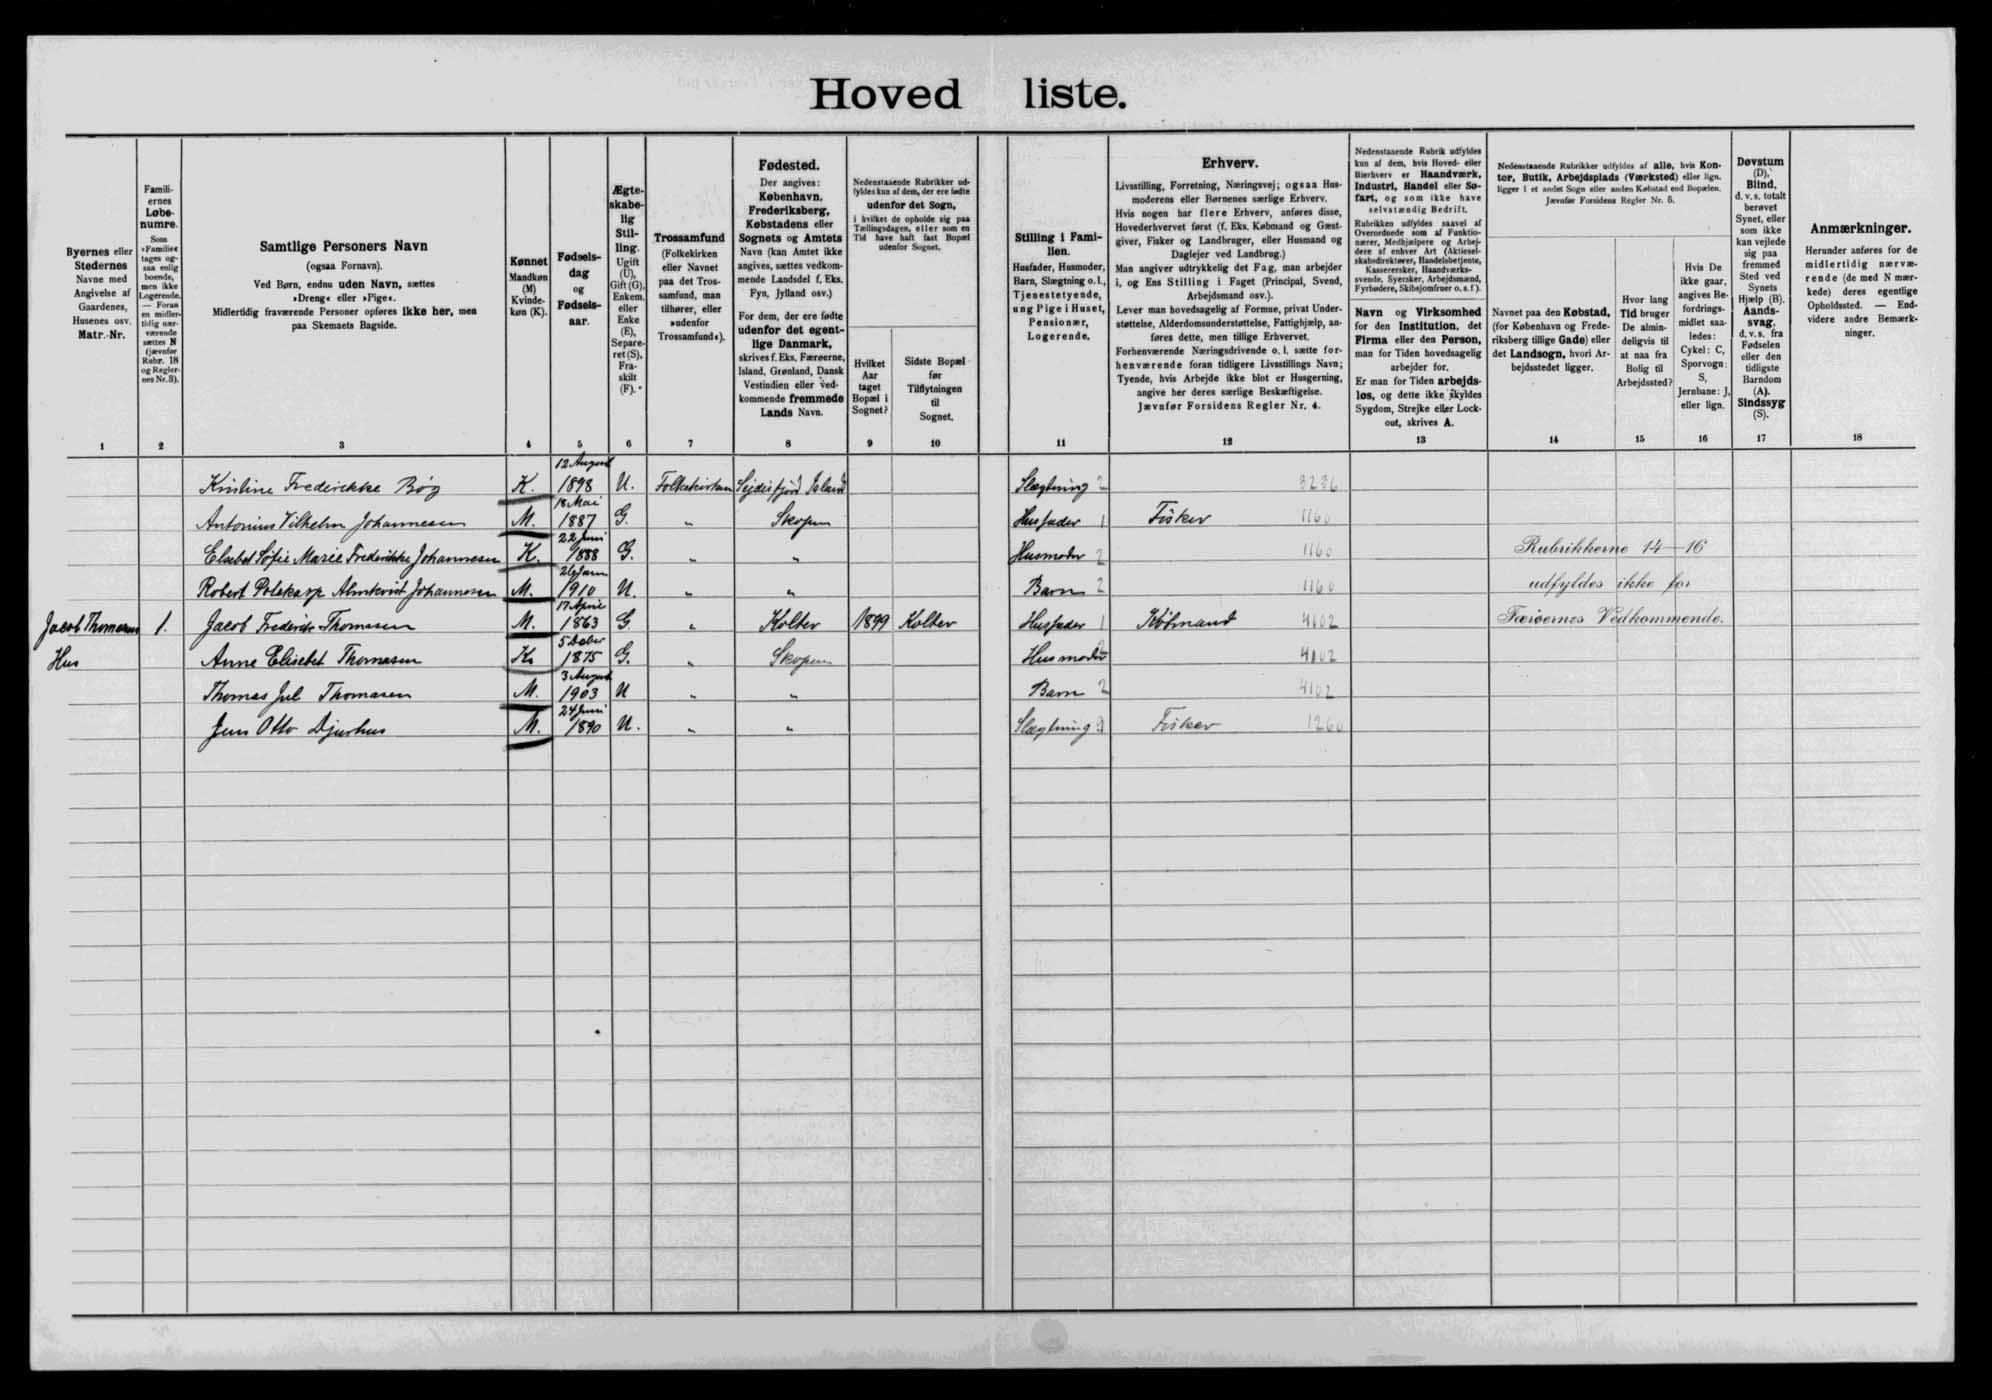 Hovedliste.
Byernes eller
Stedernes
Navne med
Angivelse af
Gaardenes,
Husenes osv.
Matr.-Nr.
1
Famili-
ernes
Løbe-
numre.
Som
»Familie«
tages og-
saa enlig
boende,
men ikke
Logerende.
— Foran
en midler-
tidig nær-
værende
sættes N
(jævnfør
Rubr. 18
og Regler-
nes Nr. 3).
2
Samtlige Personers Navn
(ogsaa Fornavn).
Ved Børn, endnu uden Navn, sættes
»Dreng« eller »Pige«.
Midlertidig fraværende Personer opføres ikke her, men
paa Skemaets Bagside.
3
Kønnet
Mandkøn
(M)
Kvinde-
køn (K).
4
Fødsels-
dag
og
Fødsels-
aar.
5
Ægte-
skabe-
lig
Stil-
ling.
Ugift
(U),
Gift (G),
Enkem.
eller
Enke
(E),
Separe-
ret (S),
Fra-
skilt
(F).
6
Trossamfund
(Folkekirken
eller Navnet
paa det Tros-
samfund, man
tilhører, eller
»udenfor
Trossamfund«).
7
Fødested.
Der angives:
København,
Frederiksberg,
Købstadens eller
Sognets og Amtets
Navn (kan Amtet ikke
angives, sættes vedkom-
mende Landsdel f. Eks.
Fyn, Jylland osv.)
For dem, der ere fødte
udenfor det egent-
lige Danmark,
skrives f. Eks. Færøerne,
Island, Grønland, Dansk
Vestindien eller ved-
kommende fremmede
Lands Navn.
8
Nedenstaaende Rubrikker ud-
fyldes kun af dem, der ere fødte
udenfor det Sogn,
i hvilket de opholde sig paa
Tællingsdagen, eller som en
Tid have haft fast Bopæl
udenfor Sognet.
Hvilket
Aar
taget
Bopæl i
Sognet?
9
Sidste Bopæl
før
Tilflytningen
til
Sognet.
10
Stilling i Fami-
lien.
Husfader, Husmoder,
Barn, Slægtning o.l.,
Tjenestetyende,
ung Pige i Huset,
Pensionær,
Logerende.
11
Erhverv.
Livsstilling, Forretning, Næringsvej; ogsaa Hus-
moderens eller Børnenes særlige Erhverv.
Hvis nogen har flere Erhverv, anføres disse,
Hovederhvervet først (f. Eks. Købmand og Gæst-
giver, Fisker og Landbruger, eller Husmand og
Daglejer ved Landbrug.)
Man angiver udtrykkelig det Fag, man arbejder
i, og Ens Stilling i Faget (Principal, Svend,
Arbejdsmand osv.).
Lever man hovedsagelig af Formue, privat Under-
støttelse, Alderdomsunderstøttelse, Fattighjælp, an-
føres dette, men tillige Erhvervet.
Forhenværende Næringsdrivende o. l. sætte for-
henværende foran tidligere Livsstillings Navn;
Tyende, hvis Arbejde ikke blot er Husgerning,
angive her deres særlige Beskæftigelse.
Jævnfør Forsidens Regler Nr. 4.
12
Nedenstaaende Rubrik udfyldes
kun af dem, hvis Hoved- eller
Bierhverv er Haandværk,
Industri, Handel eller Sø-
fart, og som ikke have
selvstændig Bedrift.
Rubrikken udfyldes saavel af
Overordnede som af Funktio-
nærer, Medhjælpere og Arbej-
dere af enhver Art (Aktiesel-
skabsdirektører, Handelsbetjente,
Kassererske, Haandværks-
svende, Syersker, Arbejdsmænd,
Fyrbødere, Skibsjomfruer o. s. f.).
Navn og Virksomhed
for den Institution, det
Firma eller den Person,
man for Tiden hovedsagelig
arbejder for.
Er man for Tiden arbejds-
løs, og dette ikke skyldes
Sygdom, Strejke eller Lock-
out, skrives A.
13
Nedenstaaende Rubrikker udfyldes af alle, hvis Kon-
tor, Butik, Arbejdsplads (Værksted) eller lign.
ligger i et andet Sogn eller anden Købstad end Bopælen.
Jævnfør Forsidens Regler Nr. 5.
Navnet paa den Købstad,
(for København og Frede-
riksberg tillige Gade) eller
det Landsogn, hvori Ar-
bejdsstedet ligger.
14
Hvor lang
Tid bruger
De almin-
deligvis til
at naa fra
Bolig til
Arbejdssted?
15
Hvis De
ikke gaar,
angives Be-
fordrings-
midlet saa-
ledes:
Cykel: C,
Sporvogn:
S,
Jernbane: J,
eller lign.
16
Døvstum
(D),
Blind,
d. v. s. totalt
berøvet
Synet, eller
som ikke
kan vejlede
sig paa
fremmed
Sted ved
Synets
Hjælp (B).
Aands-
svag,
d. v. s. fra
Fødselen
eller den
tidligste
Barndom
(A).
Sindssyg
(S).
17
Anmærkninger.
Herunder anføres for de
midlertidig nærvæ-
rende (de med N mær-
kede) deres egentlige
Opholdssted. — End-
videre andre Bemærk-
ninger.
18
Kristine Frederikke Bøg K. 12 August 1898 U. Folkekirken Sejdisfjord Island Slægtning 2 9286
Antonius Vilhelm Johannesen M. 18 Mai 1887 G. " Skopen Husfader 1 Fisker 1160
Elsebet Sofie Marie Frederikke Johannesen K. 22 Juni 1888 G. " " Husmoder 2 1160 Rubrikkerne 14–16
Robert Polekarp Almkvist Johannesen M. 1910 U. " " Barn 2 1160 udfyldes ikke for
Jacob Thomasens 1. Jacob Frederik Thomasen M. 17 April 1863 G. " Kolter 1899 Kolter Husfader 1 Købmand 4102 Færøernes Vedkommende.
Hus Anne Elisebet Thomasen K. 1875 G. " Skopen Husmoder 2 4102
Thomas Jul Thomasen M. 3 August 1903 U " " Barn 2 4102
Jens Otto Djurhus M. 24 Juni 1890 U. " " Slægtning Fisker 1260